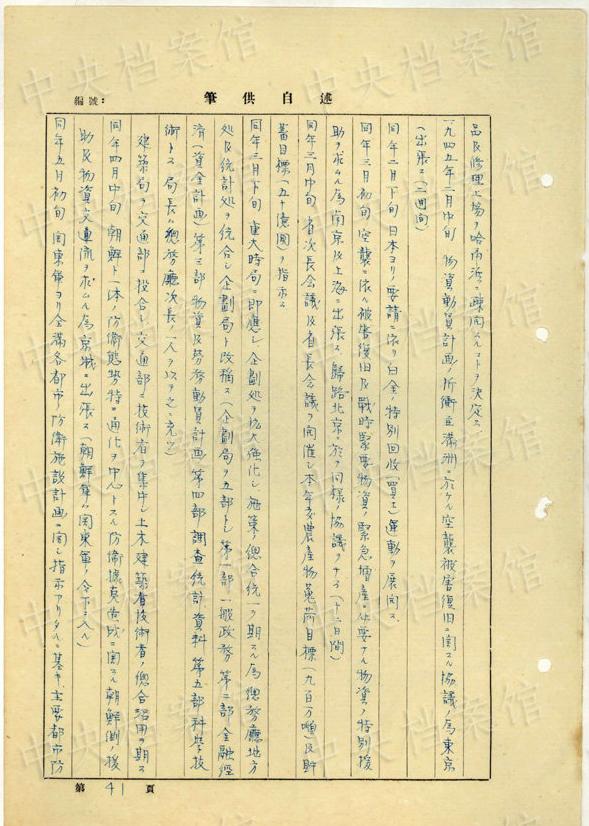 編號：
筆供自述
品及修理工場ヲ哈爾浜ニ疎開スルコトヲ決定ス、
一九四五年二月中旬 物資動員計画ノ折衝並満洲ニ於ケル空襲被害復旧ニ関スル協議ノ為東京
ニ出張ス(二週間)
同年二月下旬 日本ヨリノ要請ニ依リ白金ノ特別回收(買上)運動ヲ展開ス
同年三月初旬 空襲ニ依ル被害復旧及戦時緊要物資ノ緊急増産ニ必要ナル物資ノ特別援
助ヲ求ムル為南京及上海ニ出張ス 歸路北京ニ於テ同様ノ協議ヲナス(十二日間)
同年三月中旬 省次長会議及省長会議ヲ開催シ本年度農産物蒐荷目標(九百万噸)及貯
蓄目標(五十億圓)ヲ指示ス
同年三月下旬 重大時局ニ即應シ企劃処ヲ拡大強化シ施策ノ總合統一ヲ期スル為總務廳地方
処及統計処ヲ統合シ企劃局ト改稱ス(企劃局ヲ五部トシ 第一部一般政務 第二部金融經
済(資金計画) 第三部物資及労務動員計画 第四部調査統計資料 第五部科学技
術トス 局長ハ總務廳次長ノ一人ヲ以テ之ニ充ツ)
建築局ヲ交通部ニ投合シ交通部ニ技術者ヲ集中シ土木建築者技術者ノ總合活用ヲ期ス
同年四月中旬 朝鮮ト一体ノ防衛態勢特ニ通化ヲ中心トスル防衛據点造成ニ関スル朝鮮側ノ援
助及物資交流ヲ求ムル為京城ニ出張ス(朝鮮軍ハ関東軍ノ令下ニ入ル)
同年五月初旬 関東軍ヨリ全満各都市ノ防衛施設計画ニ関シ指示アリタルニ基キ主要都市防
第 41 頁
中央档案馆